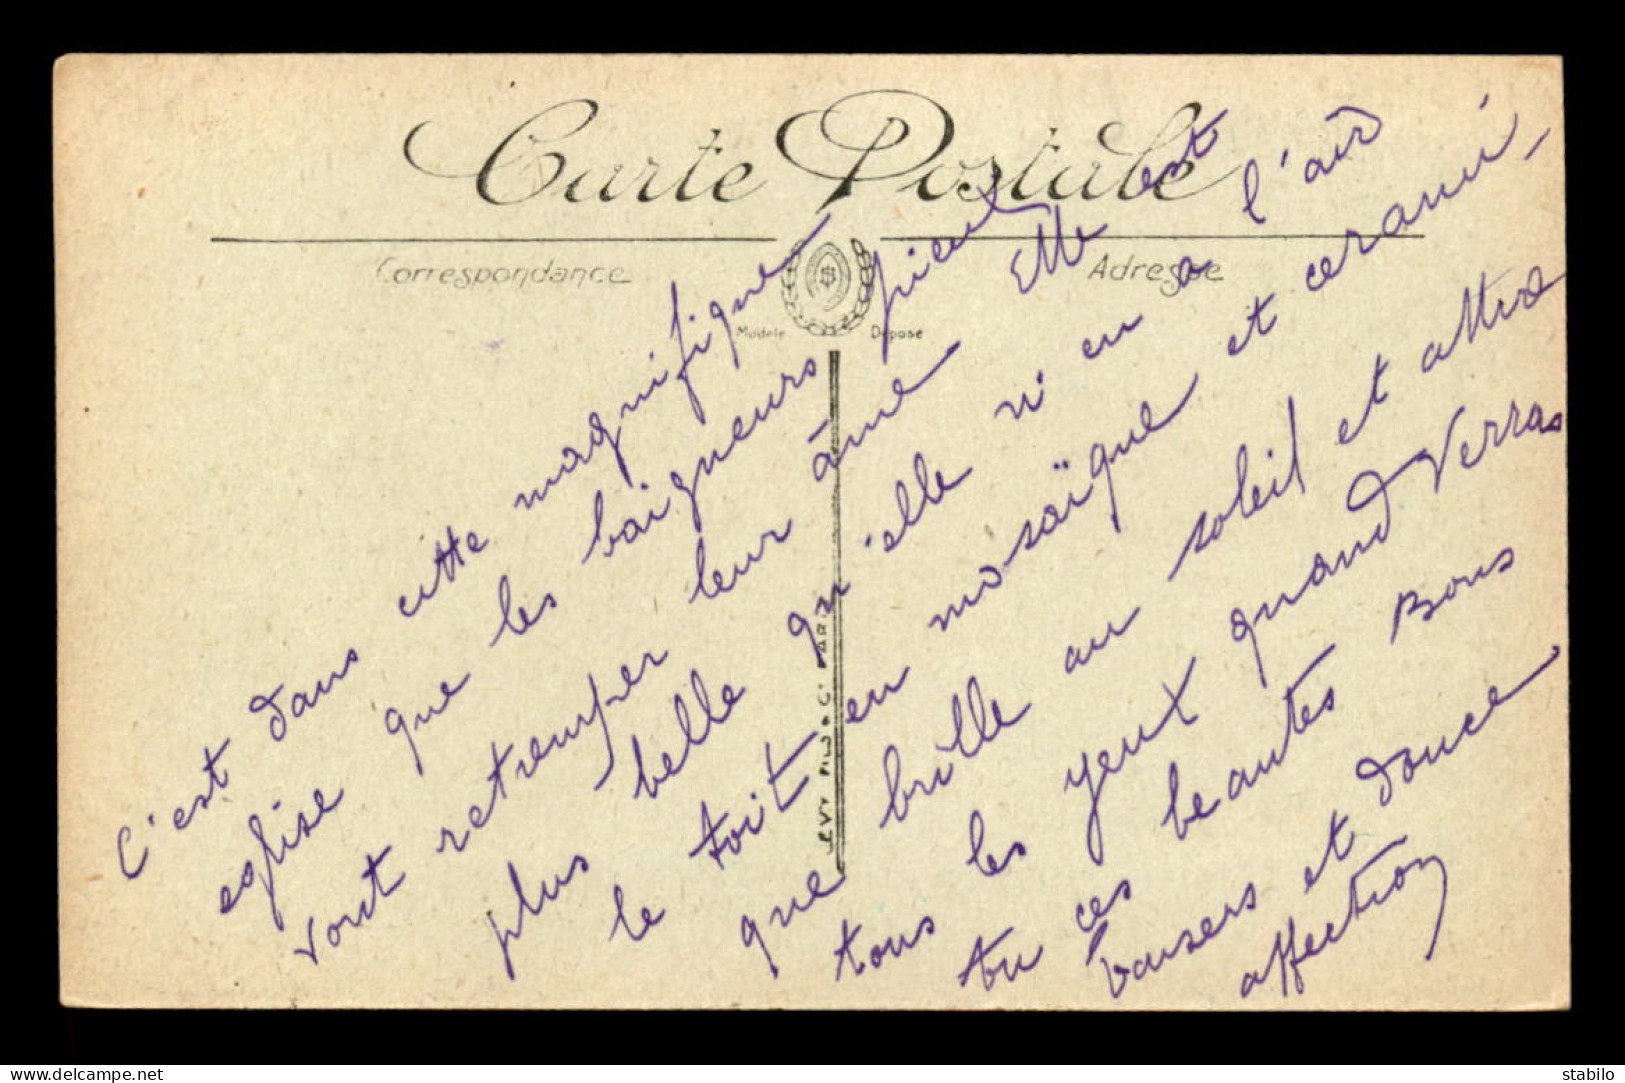 Carte Postale
Correspondance
Adresse
Modèle Déposé
LEVY FILS & Cie PARIS
C'est dans cette magnifique
eglise que les baigneurs pieux
vont retremper leur âme Elle est
plus belle qu'elle n'en a l'air
le toit en mosaïque et cerami-
que brille au soleil et attire
tous les yeux quand Verras
tu ces beautes Bons
baisers et douce
affection
www.delcampe.net
stabilo